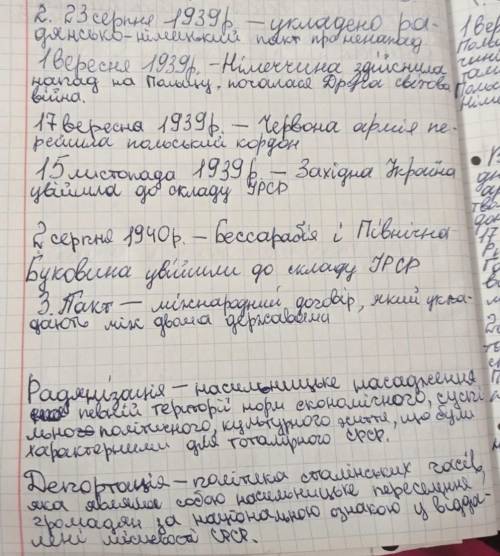 2. 23 серпня 1939р. – укладено ра-
дянсько-німецький пакт про ненапад
1 вересня 1939р. – Німеччина здійснила
напад на Польщу, почалася Друга світова
війна.
17 вересня 1939р. – Червона армія пе-
рейшла польський кордон
15 листопада 1939р. – Західна Україна
увійшла до складу УРСР
2 серпня 1940р. – Бессарабія і Північна
Буковина увійшли до складу УРСР
3. Пакт – міжнародний договір, який укла-
дають між двома державами
Радянізація – насильницьке насадження
певній території норм економічного, суспі
льного політичного, культурного життя, що були
характерними для тоталірного СРСР.
Депортація – політика сталінських часів,
яка являла собою насильницьке переселення
громадян за національною ознакою у відда-
лені місцевості СРСР.